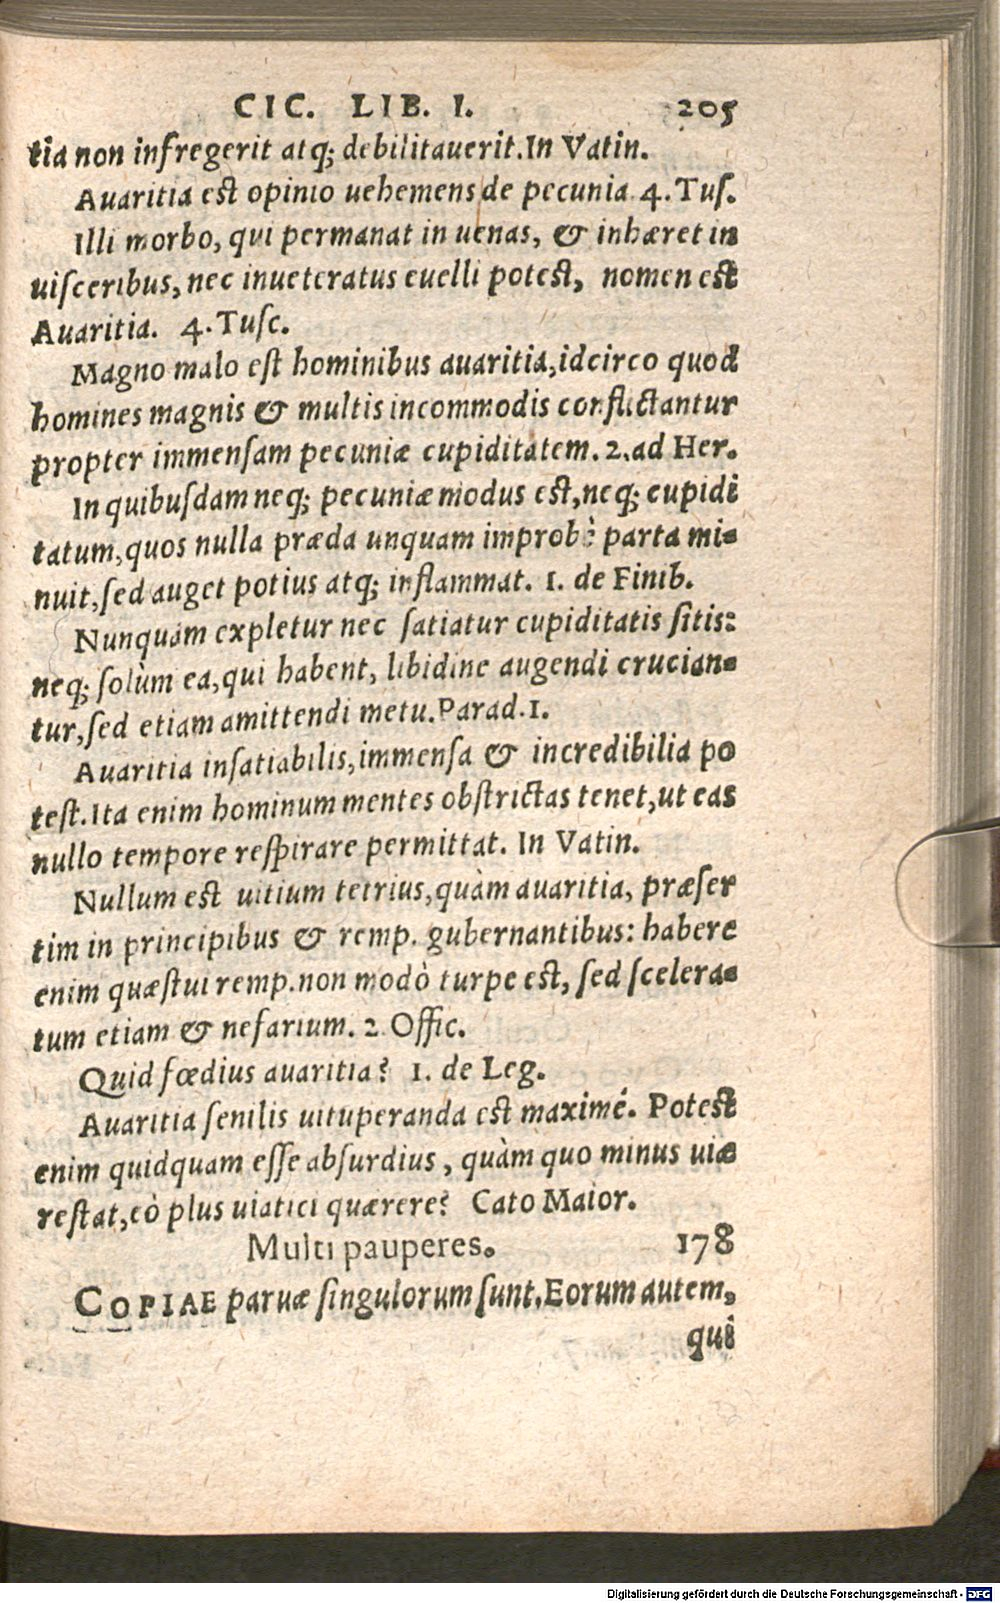 CIC. LIB. I. 205
tia non infregerit atq; debilitauerit. In Vatin.
Auaritia est opinio uehemens de pecunia. 4. Tuſ.
Illi morbo, qui permanat in uenas, & inhæret in
uiſceribus, nec inueteratus euelli potest, nomen est
Auaritia. 4. Tuſc.
Magno malo eſt hominibus auaritia, idcirco quod
homines magnis & multis incommodis conflictantur
propter immenſam pecuniæ cupiditatem. 2. ad Her.
In quibuſdam neq; pecuniæ modus est, neq; cupidi
tatum, quos nulla præda unquam improbè parta mi-
nuit, ſed auget potius atq; inflammat. 1. de Finib.
Nunquam expletur nec ſatiatur cupiditatis ſitis:
neq; ſolùm ea, qui habent, libidine augendi crucian-
tur, ſed etiam amittendi metu. Parad. 1.
Auaritia inſatiabilis, immenſa & incredibilia po
teſt. Ita enim hominum mentes obſtrictas tenet, ut eas
nullo tempore reſpirare permittat. In Vatin.
Nullum est uitium tetrius, quàm auaritia, præſer
tim in principibus & remp. gubernantibus: habere
enim quæſtui remp. non modò turpe est, ſed ſcelera-
tum etiam & nefarium. 2. Offic.
Quid fœdius auaritia? 1. de Leg.
Auaritia ſenilis uituperanda est maximé. Potest
enim quidquam eſſe abſurdius, quàm quo minus uiæ
reſtat, eò plus uiatici quærere? Cato Maior.
Multi pauperes. 178
COPIAE paruæ ſingulorum ſunt. Eorum autem,
qui
Digitalisierung gefördert durch die Deutsche Forschungsgemeinschaft - DFG